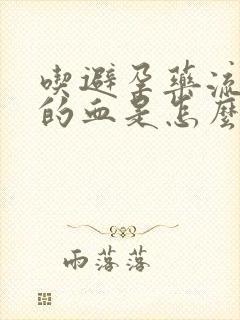 喫避孕藥流
的血是怎麼
雨落落